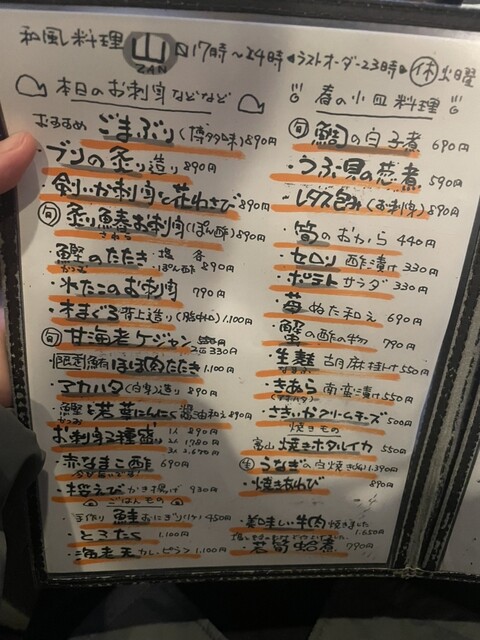 和風料理 山 ZAN 17時〜24時 ラストオーダー23時 休 火曜
本日のお刺身などなど
おすすめ ごまぶり (博多の味) 890円
・ブリの炙り造り 890円
・剣いか刺身と花わさび 890円
旬 炙り鰆お刺身 (ぽん酢) 890円
さわら
鰹のたたき ・塩 ・ぽん酢 各890円
かつお
・水たこのお刺身 790円
・本まぐろ 背上造り (脂中心) 1.100円
旬 甘海老ケジャン 2匹 330円
限定鮪ほほ肉たたき 1.100円
・アカハタ (白身)造り 890円
・鰹と若葉にんにく醤油和え 890円
かつお
お刺身3種盛り 1人 890円
2人 1.780円
3人 2.670円
・赤なまこ酢 690円
・桜えびかき揚げ 930円
ごはんもの
・手作り 鮭おにぎり 450円
・とろたく 1.100円
・海老天カレーピラフ 1.100円
春の小皿料理
旬 鯛の白子煮 690円
・つぶ貝の煮 590円
・レタス包み (お刺身) 890円
・筍のおから 440円
・セロリ酢漬け 330円
・ポテトサラダ 330円
・苺ぬた和え 690円
・蟹の酢の物 790円
・生麩胡麻掛け 550円
・きあら南蛮漬け 550円
・さきいかクリームチーズ 500円
焼きもの
富山 焼きホタルイカ 550円
・うなぎの白焼き 1.390円
・焼きあわび 890円
・美味しい牛肉焼きました 1.650円
・若筍蛤煮 790円